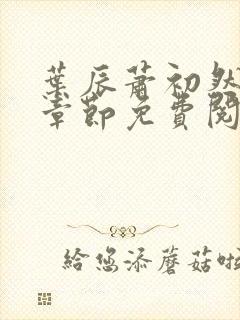 葉辰蕭初然
章節免費閱
给您添蘑菇啦